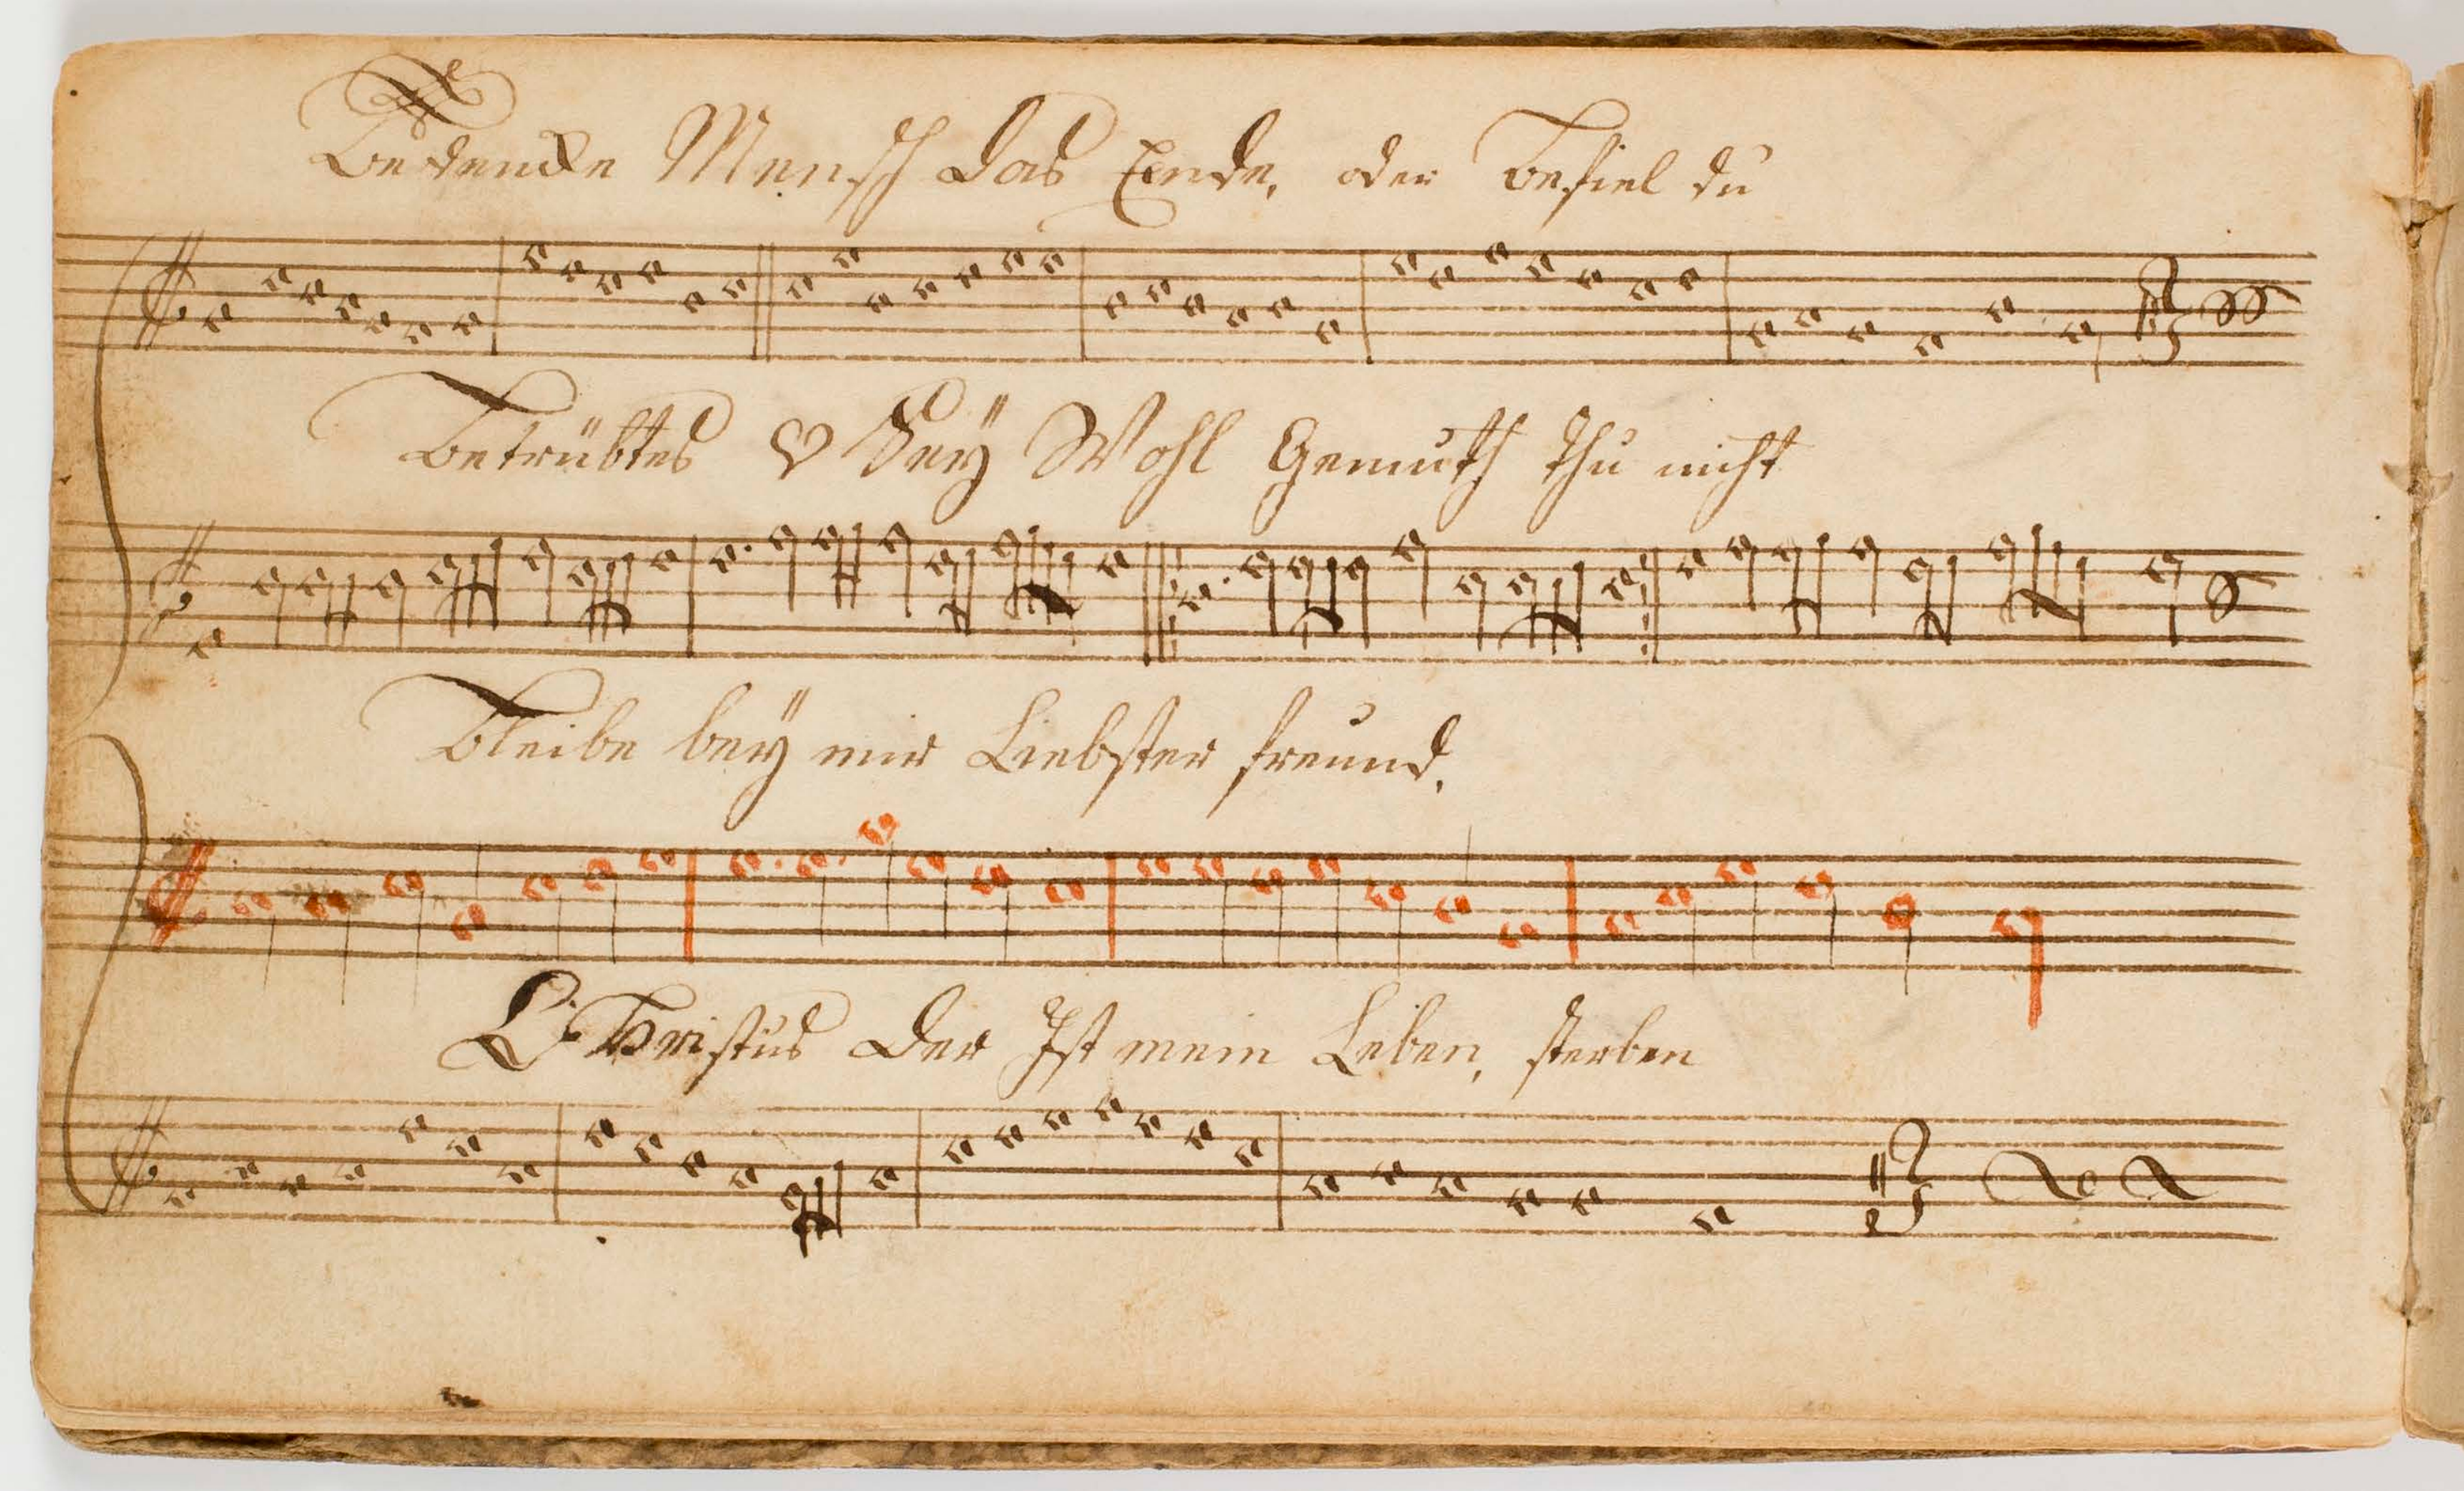 Bedencke Mensch das Ende, oder Befiel du
Betrübtes ♡ Seÿ Wohl Gemuth thu nicht
Bleibe beÿ mir Liebster freund,
CHristus der Ist mein Leben, sterben